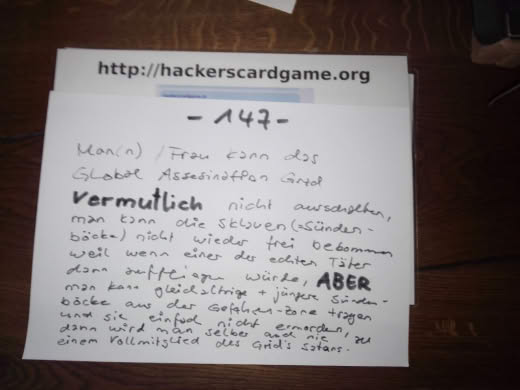 http://hackerscardgame.org
- 147 -
Man(n) / Frau kann das
Global Assesination Grid
Vermutlich nicht ausschalten,
man kann die Sklaven (=Sünden-
böcke) nicht wieder frei bekommen
weil wenn einer der echten Täter
dann auffliegen würde, ABER
man kann gleichaltrige + jüngere Sünden-
böcke aus der Gefahren-Zone tragen
und sie einfach nicht ermorden,
dann wird man selber auch nie zu
einem Vollmitglied des Grid's Satans.